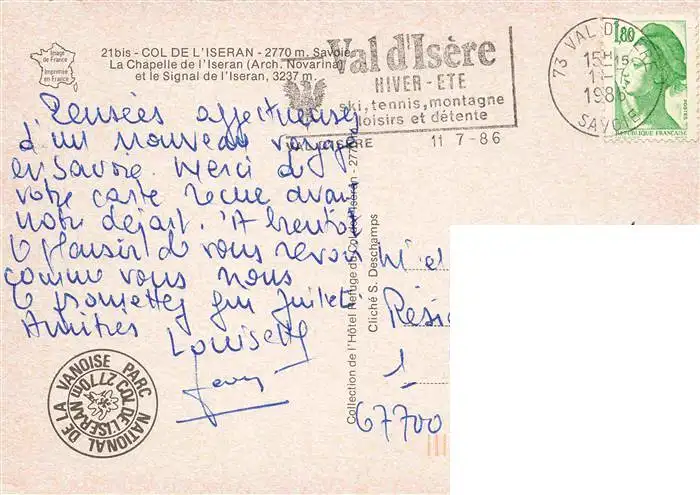 Image
de France
Imprimée
en France
21bis - COL DE L'ISERAN - 2770 m. Savoie
La Chapelle de l'Iseran (Arch. Novarina)
et le Signal de l'Iseran, 3237 m.
Val d'Isère
HIVER - ETE
ski, tennis, montagne
loisirs et détente
VAL D'ISERE 11 7 - 86
73 VAL D'ISERE
15H15
11-7
1986
SAVOIE
1,80
POSTES
REPUBLIQUE FRANÇAISE
Pensées affectueuses
d'un nouveau voyage
en Savoie. Merci de
votre carte reçue avant
notre départ. A bientôt
le plaisir de vous revoir
comme vous nous
le promettez fin Juillet
Amitiés Louisette
Collection de l'Hôtel Refuge du Col de l'Iseran - 2770 m
Cliché S. Deschamps
M et
Rési
1
67700
PARC NATIONAL DE LA VANOISE
COL DE L'ISERAN 2770 m